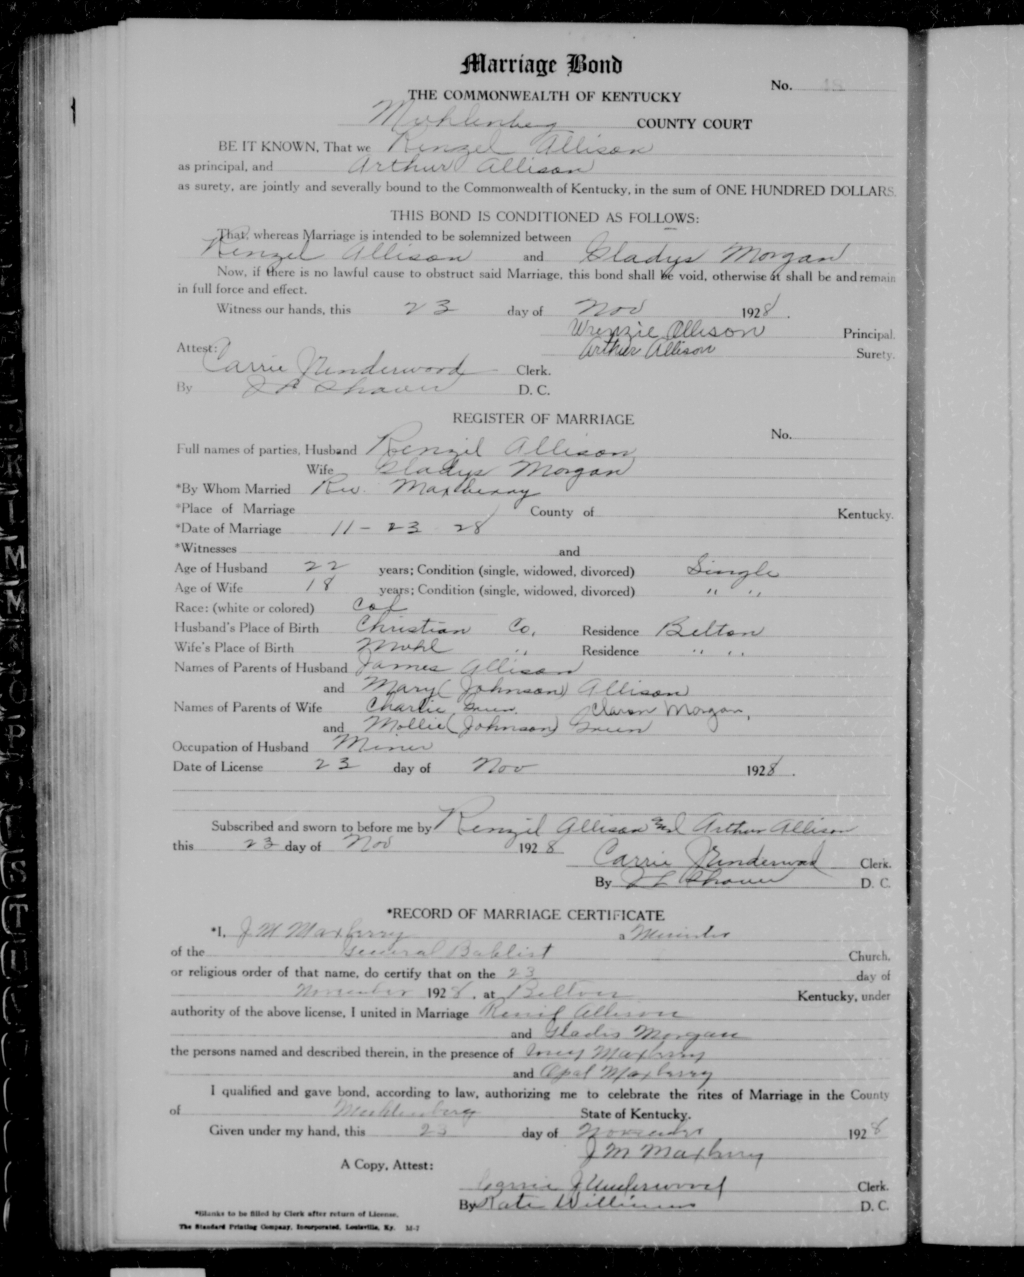 Marriage Bond
No.
THE COMMONWEALTH OF KENTUCKY
Muhlenberg COUNTY COURT
BE IT KNOWN, That we Renzel Allison
as principal, and Arthur Allison
as surety, are jointly and severally bound to the Commonwealth of Kentucky, in the sum of ONE HUNDRED DOLLARS.
THIS BOND IS CONDITIONED AS FOLLOWS:
That, whereas Marriage is intended to be solemnized between
Renzel Allison and Gladys Morgan
Now, if there is no lawful cause to obstruct said Marriage, this bond shall be void, otherwise it shall be and remain
in full force and effect.
Witness our hands, this 23 day of Nov 1928.
Wrenzie Allison Principal.
Arthur Allison Surety.
Attest:
Carrie J Underwood Clerk.
By J L Shaver D. C.
REGISTER OF MARRIAGE
No.
Full names of parties, Husband Renzil Allison
Wife Gladys Morgan
*By Whom Married Rev Maxberry
*Place of Marriage County of Kentucky.
*Date of Marriage 11-23 28
*Witnesses and
Age of Husband 22 years; Condition (single, widowed, divorced) Single
Age of Wife 18 years; Condition (single, widowed, divorced) " "
Race: (white or colored) Col
Husband's Place of Birth Christian Co, Residence Belton
Wife's Place of Birth Muhl " Residence " "
Names of Parents of Husband James Allison
and Mary (Johnson) Allison
Names of Parents of Wife Charlie Green. Morgan,
and Mollie (Johnson) Green
Occupation of Husband Miner
Date of License 23 day of Nov 1928.
Subscribed and sworn to before me by Renzil Allison and Arthur Allison
this 23 day of Nov 1928
Carrie J Underwood Clerk.
By J L Shaver D. C.
*RECORD OF MARRIAGE CERTIFICATE
*I, J M Maxberry a Minister
of the General Babtist Church,
or religious order of that name, do certify that on the 23 day of
November 1928, at Belton Kentucky, under
authority of the above license, I united in Marriage Renzil Allison
and Gladis Morgan
the persons named and described therein, in the presence of Maxberry
and Opal Maxberry
I qualified and gave bond, according to law, authorizing me to celebrate the rites of Marriage in the County
of Muhlenberg State of Kentucky.
Given under my hand, this 23 day of November 1928
J M Maxberry
A Copy, Attest:
Carrie J Underwood Clerk.
By Kate Williams D. C.
*Blanks to be filled by Clerk after return of License.
The Standard Printing Company, Incorporated, Louisville, Ky. M-7